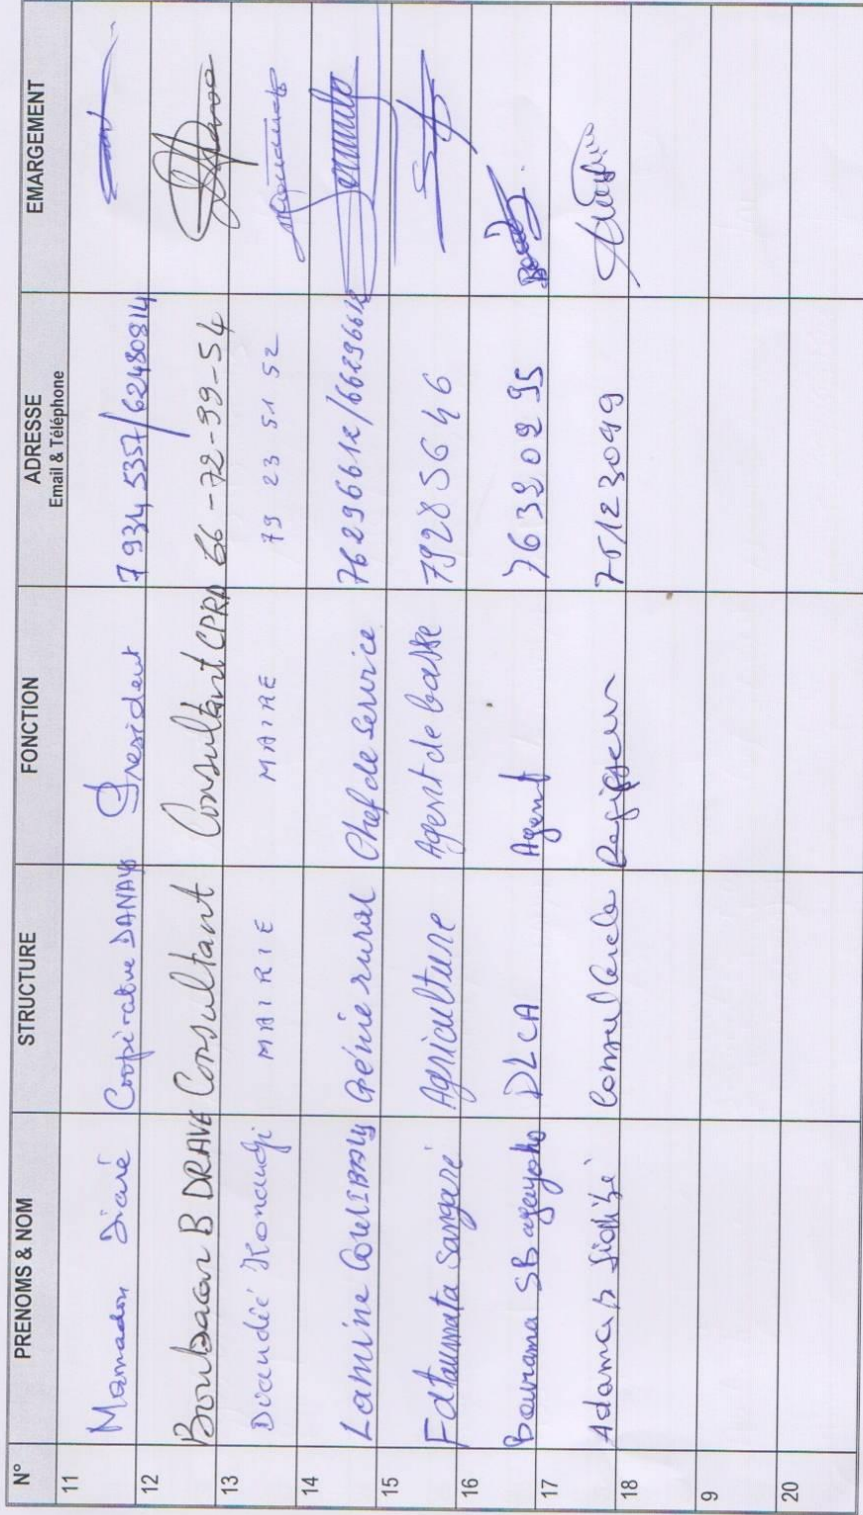 N° PRENOMS & NOM STRUCTURE FONCTION ADRESSE EMARGEMENT
Email & Téléphone
11 Mamadou Diaré Coopérative DANAYA Président 7934 5357/62480814
12 Boubacar B DRAVE Consultant Consultant CPRP 66-72-99-54
13 Konandji MAIRIE MAIRE 79 23 51 52
14 Lamine COULIBALY Génie rural Chef de service 76296612/66296612
15 Fatoumata Sangaré Agriculture Agent de basse 79285646
16 Bourama SBagayoko DLCA Agent 76320295
17 Adama Régisseur 75123099
18
9
20